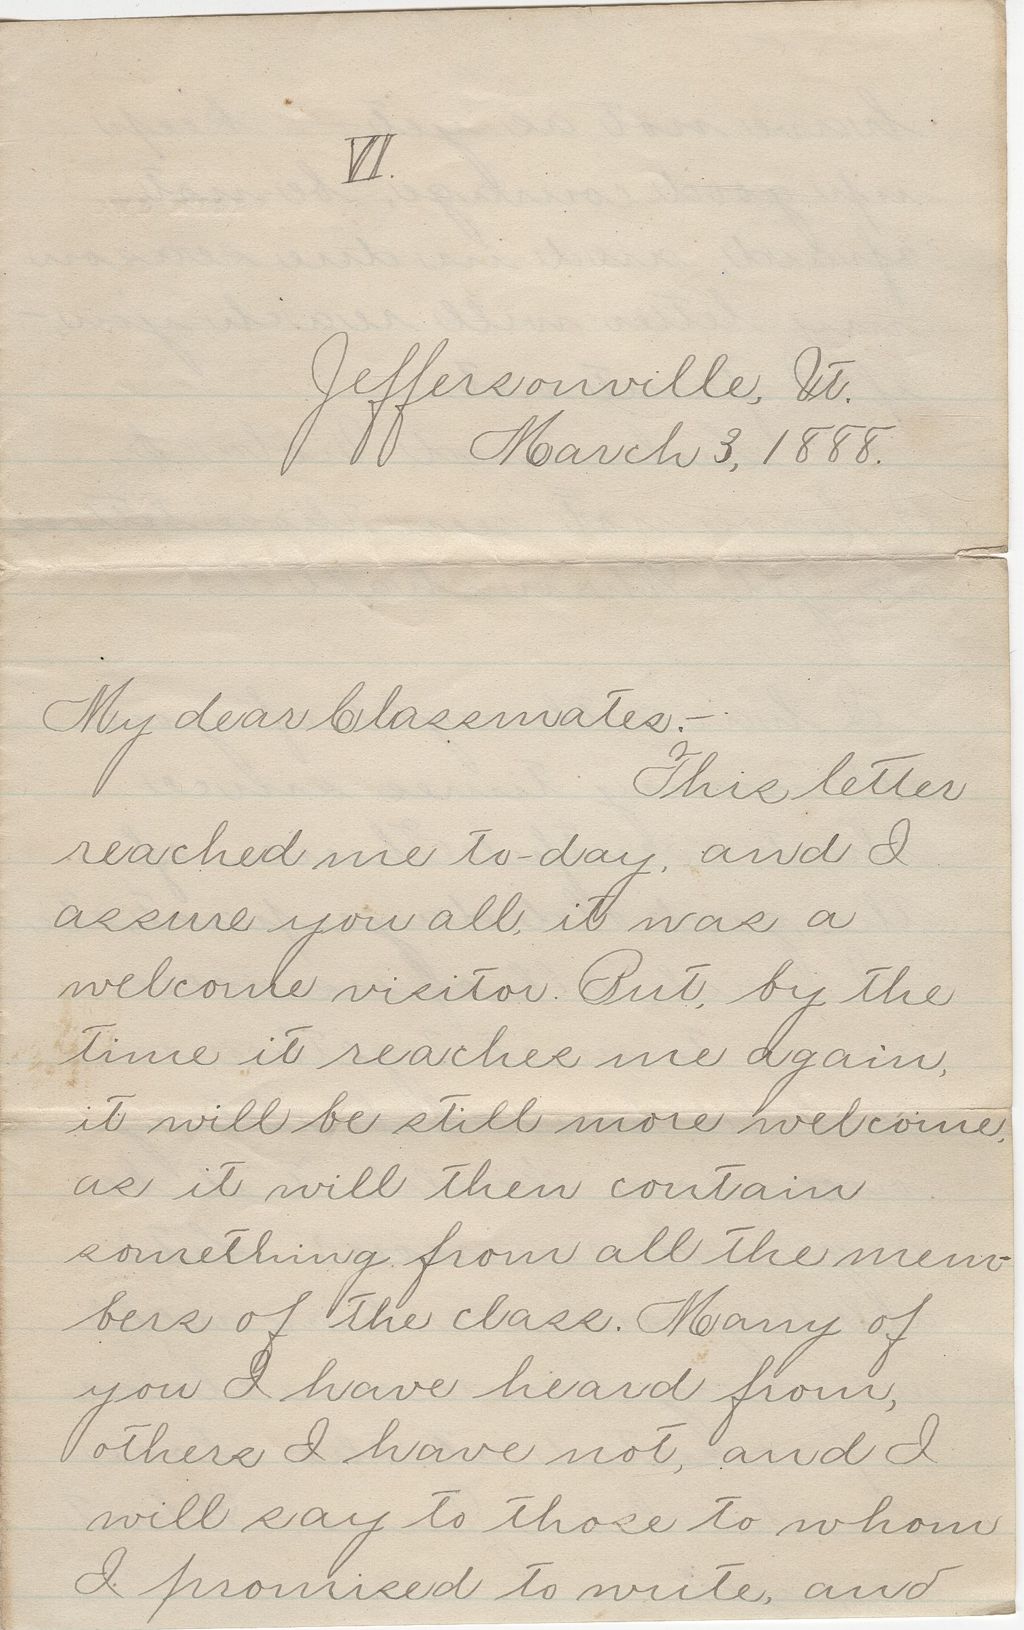 VI.
Jeffersonville, Vt.
March 3, 1888.
My dear Classmates:-
This letter
reached me to-day, and I
assure you all, it was a
welcome visitor. But, by the
time it reaches me again,
it will be still more welcome,
as it will then contain
something from all the mem-
bers of the class. Many of
you I have heard from,
others I have not, and I
will say to those to whom
I promised to write, and